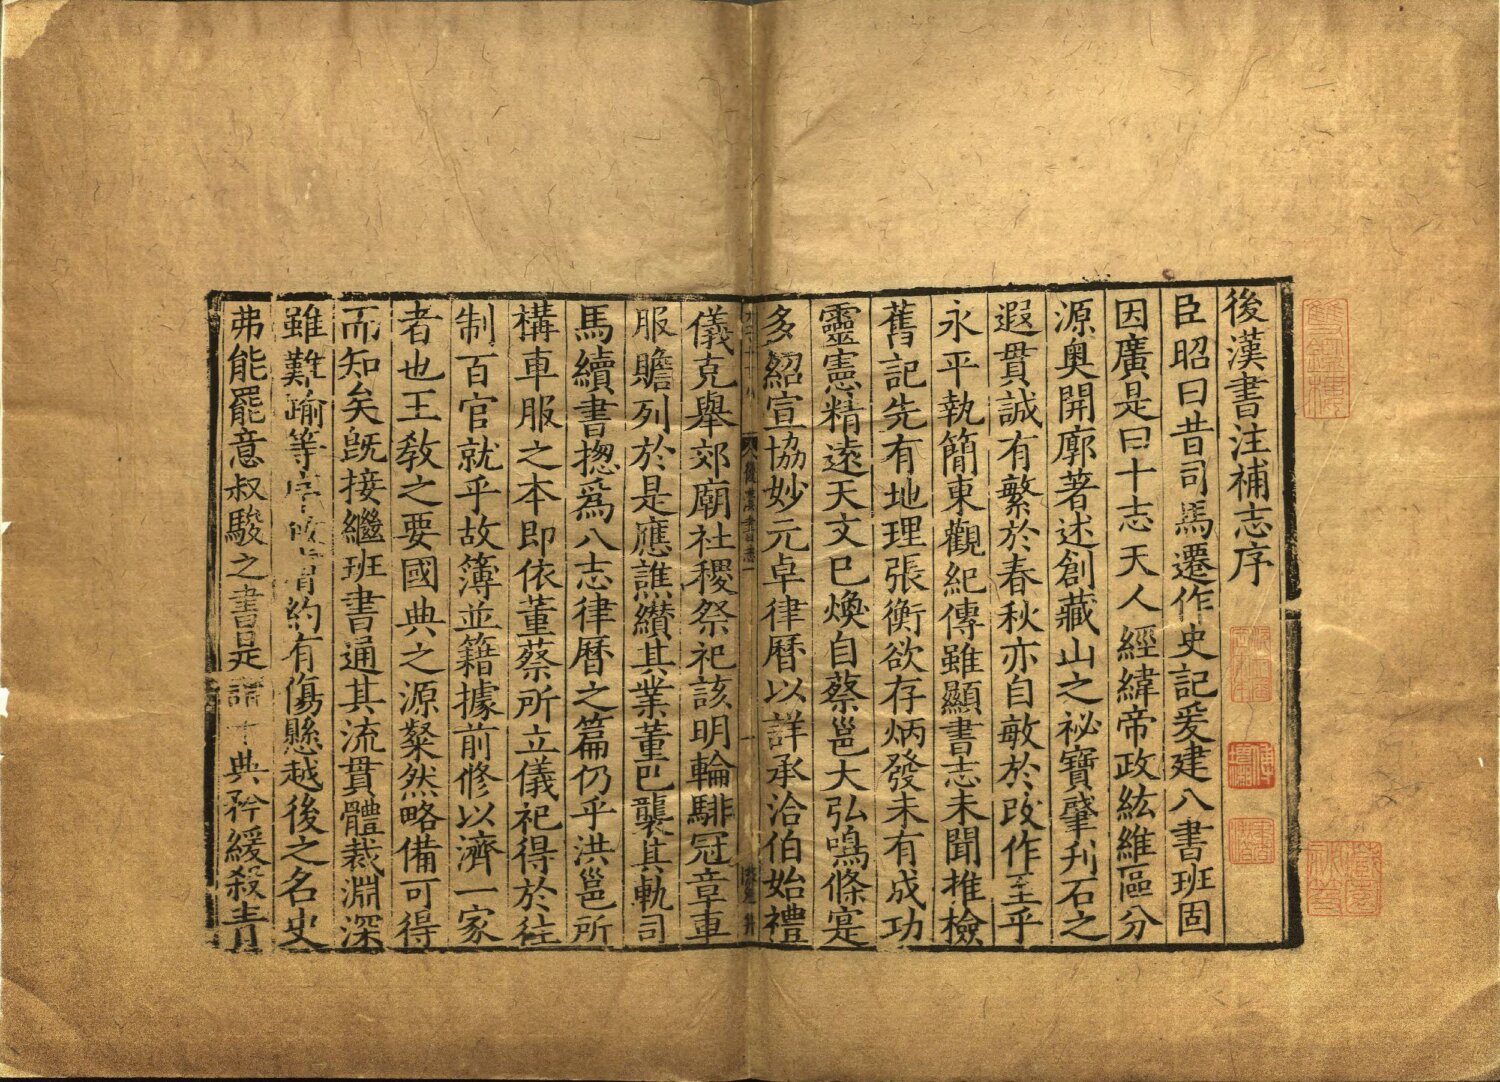 後漢書注補志序
臣昭曰昔司馬遷作史記爰建八書班固
因廣是曰十志天人經緯帝政紘維區分
源奧開廓著述創藏山之祕寶肇刋石之
遐貫誠有繁於春秋亦自敏於改作至乎
永平執簡東觀紀傳雖顯書志未聞推檢
舊記先有地理張衡欲存炳發未有成功
靈憲精遠天文已煥自蔡邕大弘鳴條寔
多紹宣協妙元卓律曆以詳承洽伯始禮
儀克舉郊廟社稷祭祀該明輪騑冠章車
服贍列於是應譙纘其業董巴襲其軌司
馬續書揔爲八志律曆之篇仍乎洪邕所
構車服之本即依董蔡所立儀祀得於往
制百官就乎故簿並籍據前修以濟一家
者也王教之要國典之源粲然略備可得
而知矣既接繼班書通其流貫體裁淵深
雖難踰等序致膚約有傷懸越後之名史
弗能罷意叔駿之書是謂十典矜緩殺青